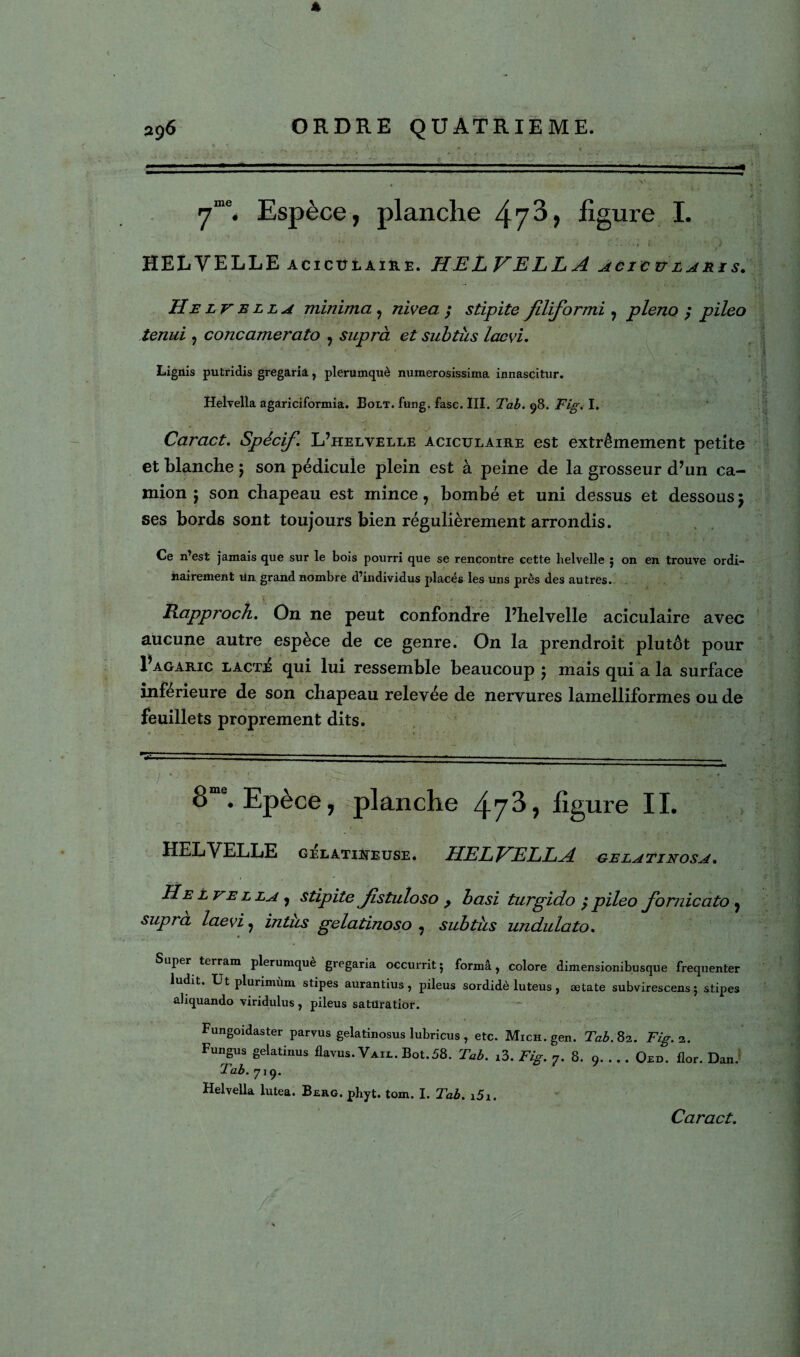 296 ORDRE QUATRIÈME.
7me. Espèce, planche 473, figure I.
HELVELLE ACICULAIRE. HELVELLA ACICULARIS.
HELVELLA minima, nivea ; stipite filiformi, pleno ; pileo
tenui, concamerato, suprà et subtùs laevi.
Lignis putridis gregaria, plerumquè numerosissima innascitur.
Helvella agariciformia. BOLT. fung. fasc. III. Tab. 98. Fig. I.
Caract. Spécif. L'HELVELLE ACICULAIRE est extrêmement petite
et blanche ; son pédicule plein est à peine de la grosseur d'un ca-
mion ; son chapeau est mince, bombé et uni dessus et dessous ;
ses bords sont toujours bien régulièrement arrondis.
Ce n'est jamais que sur le bois pourri que se rencontre cette helvelle ; on en trouve ordi-
nairement un grand nombre d'individus placés les uns près des autres.
Rapproch. On ne peut confondre l'helvelle aciculaire avec
aucune autre espèce de ce genre. On la prendroit plutôt pour
l'AGARIC LACTÉ qui lui ressemble beaucoup ; mais qui a la surface
inférieure de son chapeau relevée de nervures lamelliformes ou de
feuillets proprement dits.
8me. Epèce, planche 473, figure II.
HELVELLE GÉLATINEUSE. HELVELLA GELATINOSA.
HELVELLA, stipite fistuloso, basi turgido ; pileo fornicato,
suprà laevi, intùs gelatinoso, subtùs undulato.
Super terram plerumquè gregaria occurrit ; formâ, colore dimensionibusque frequenter
ludit. Ut plurimùm stipes aurantius, pileus sordidè luteus, ætate subvirescens ; stipes
aliquando viridulus, pileus saturatior.
Fungoidaster parvus gelatinosus lubricus, etc. MICH. gen. Tab. 82. Fig. 2.
Fungus gelatinus flavus. VAIL. Bot. 58. Tab. 13. Fig. 7. 8. 9.... OED. flor. Dan.
Tab. 719.
Helvella lutea. BERG. phyt. tom. I. Tab. 151.
Caract.